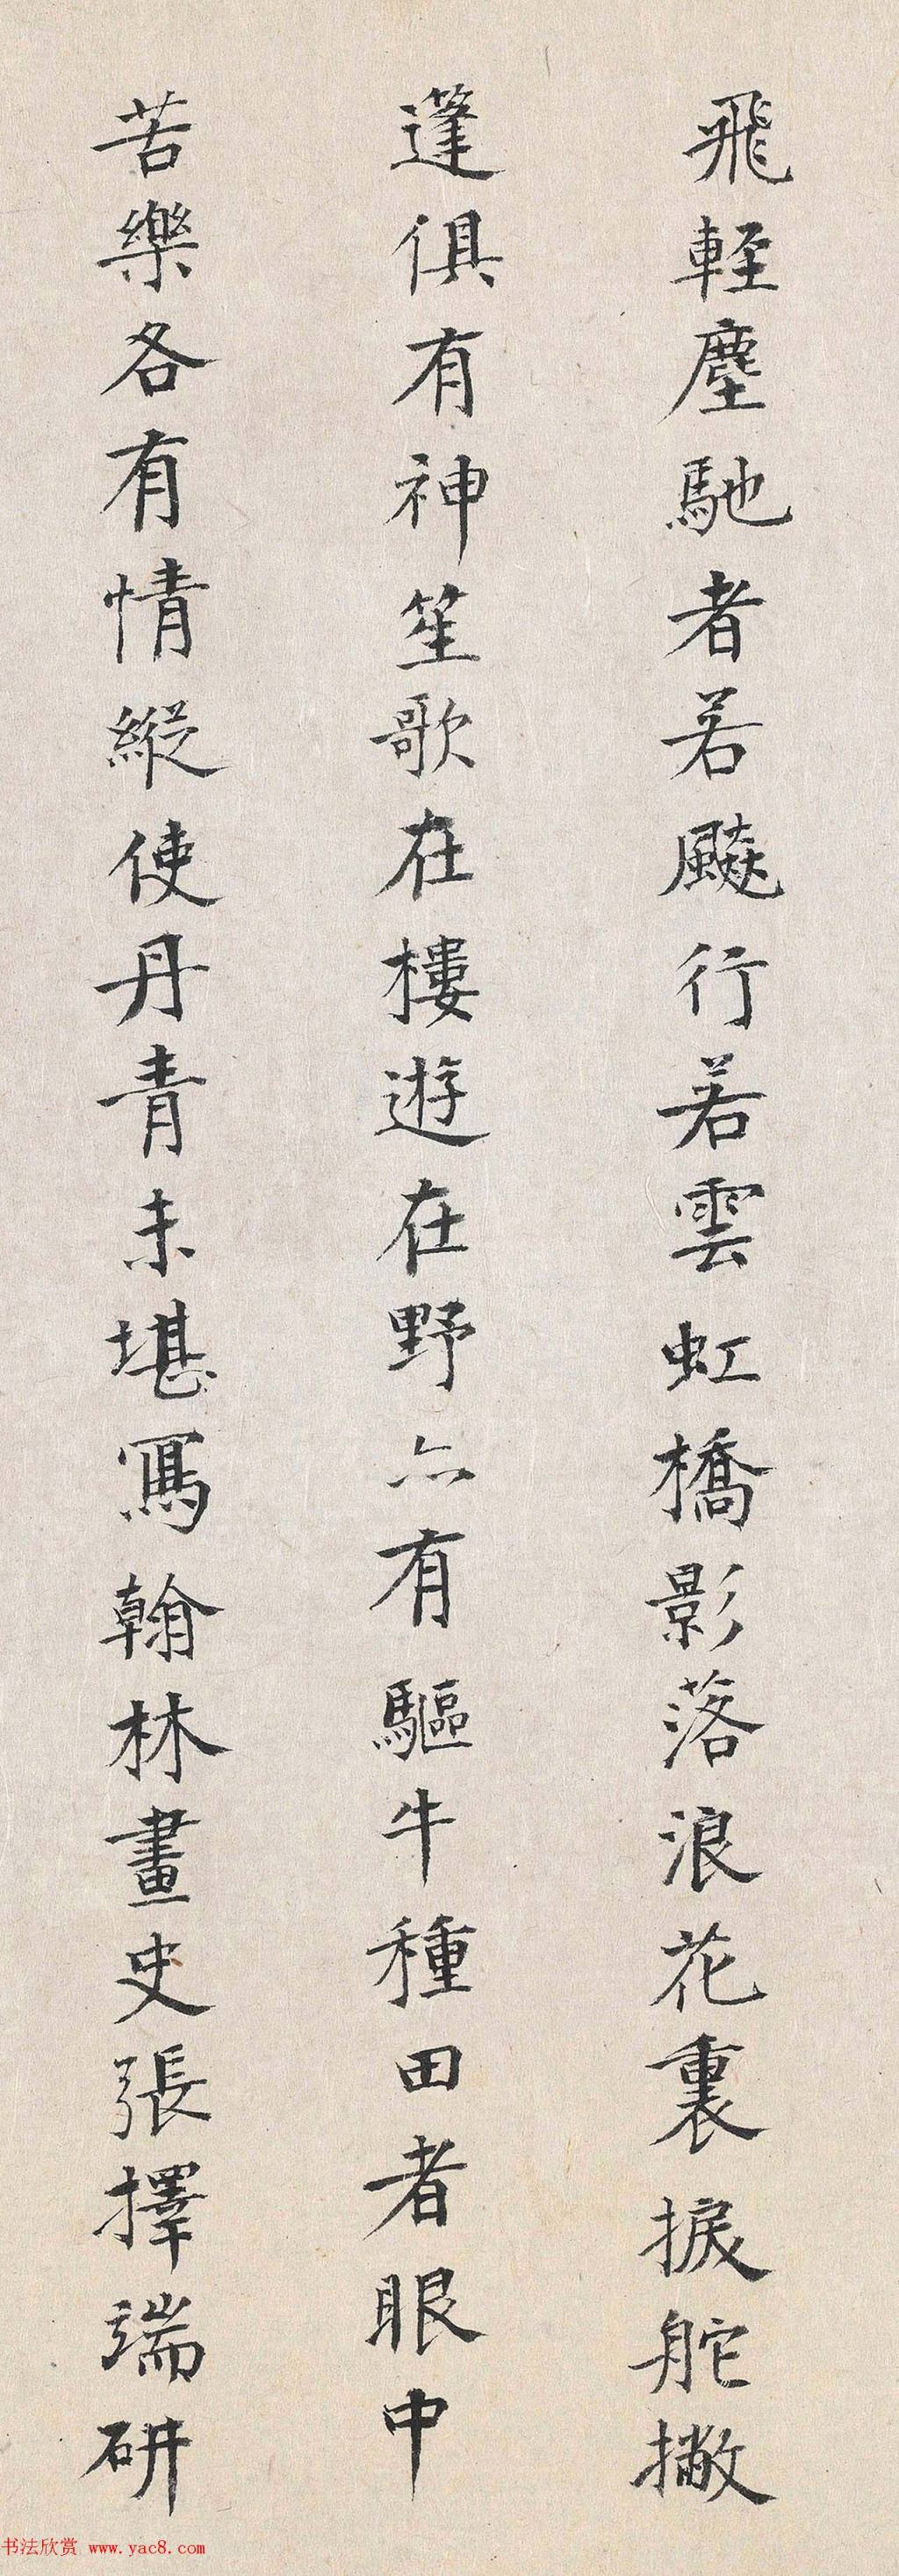 飛輕塵馳者若飈行若雲虹橋影落浪花裏捩舵撇
篷俱有神笙歌在樓遊在野亦有驅牛種田者眼中
苦樂各有情縱使丹青未堪寫翰林畫史張擇端研
书法欣赏 www.yac8.com